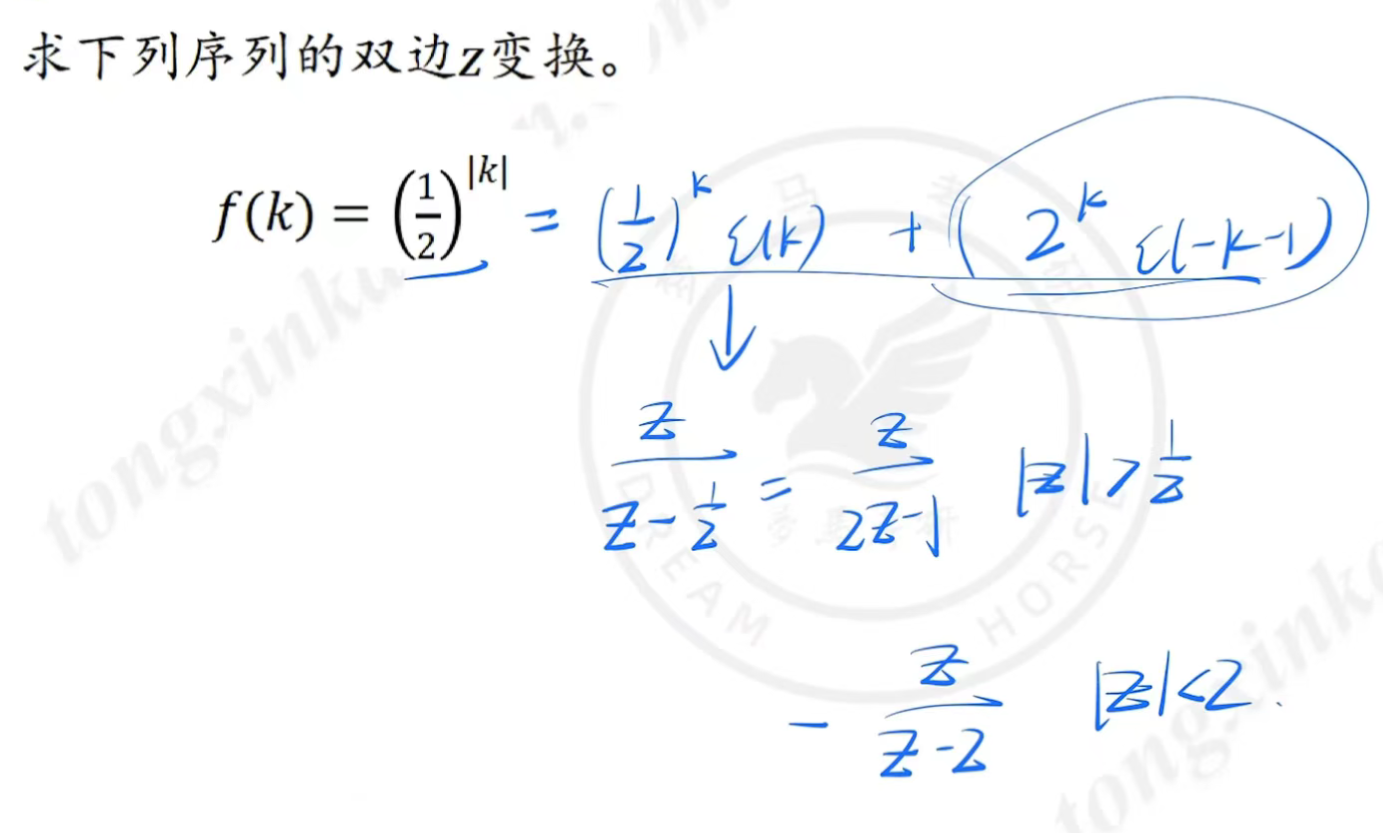 求下列序列的双边z变换。
f(k) = (1/2)^|k| = (1/2)^k ε(k) + (2^k ε(-k-1))
z/(z-1/2) = z/(2z-1) |z|>1/2
- z/(z-2) |z|<2.
tongxinku
DREAM HORSE
tongxink